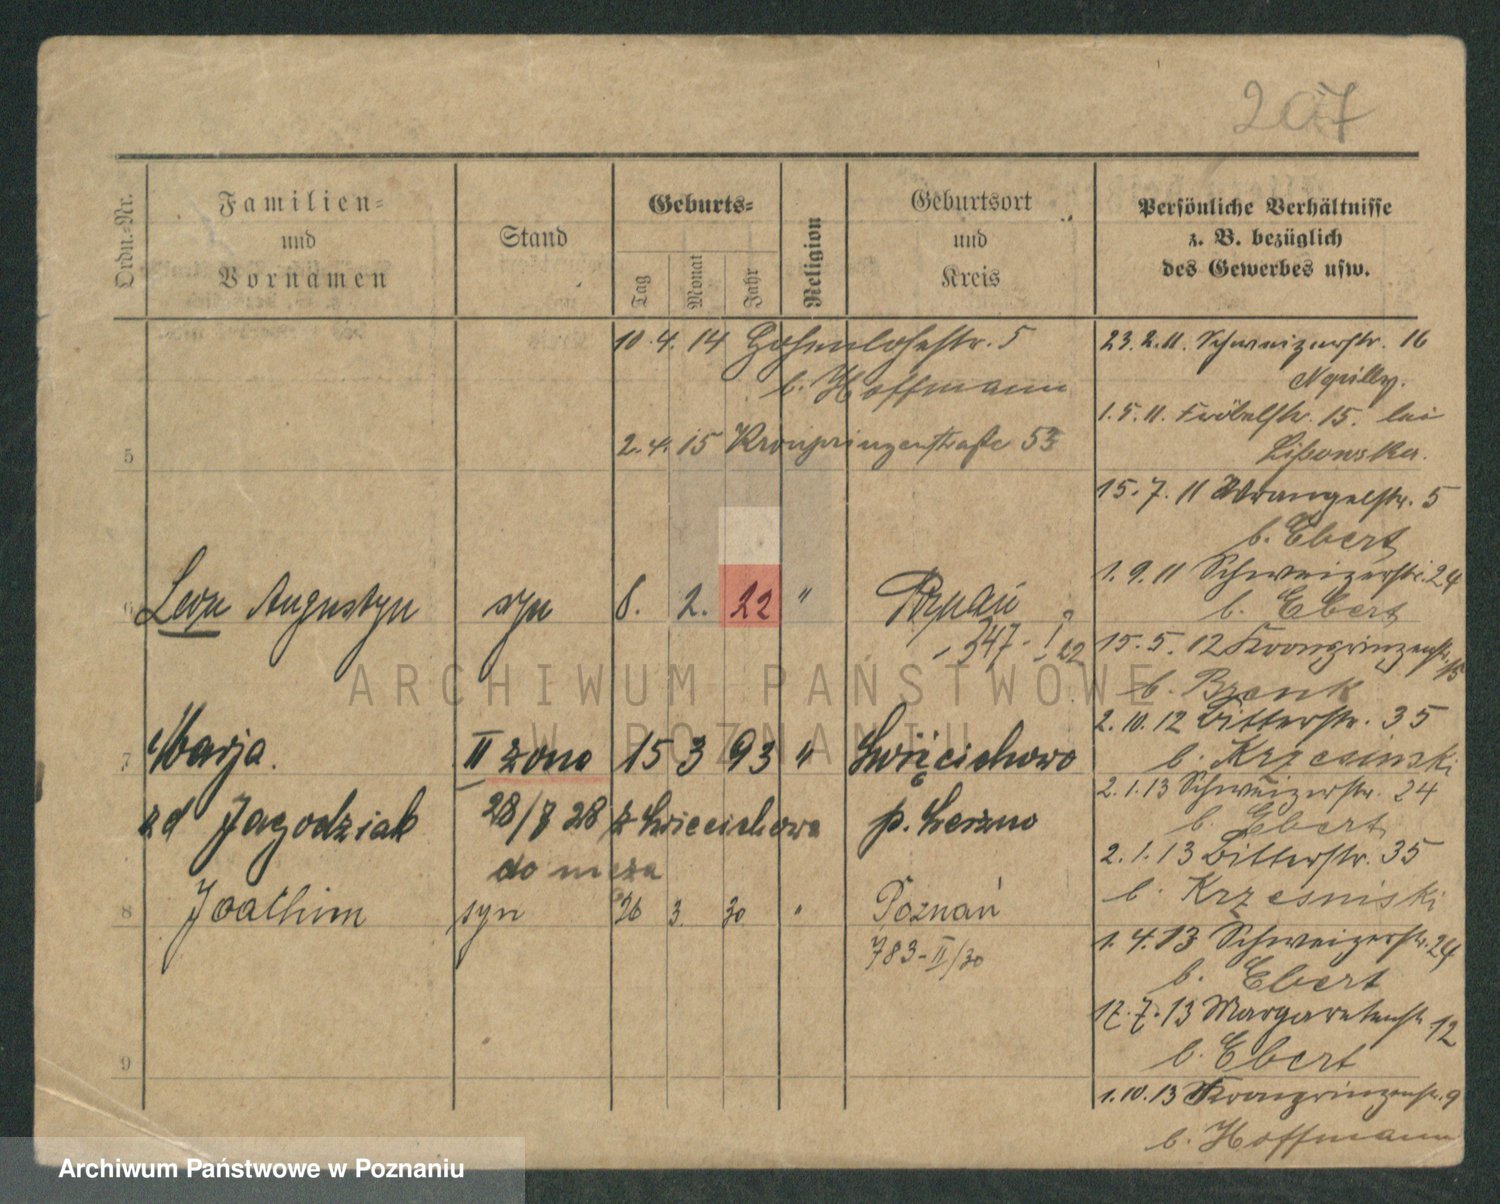 207
Ordn.-Nr.
Familien-
und
Vornamen
Stand
Geburts-
Tag
Monat
Jahr
Religion
Geburtsort
und
Kreis
Persönliche Verhältnisse
z. B. bezüglich
des Gewerbes usw.
10. 4. 14 Hohenlohestr. 5
b. Hoffmann
5 2. 4. 15 Kronprinzenstraße 53
6 Leon Augustyn syn 8. 2. 22 " Poznań
347 - I 22
7 Marja. II żona 15 3 93 " Święciechowo
zd Jagodziak 28/8 28 z Święciechowa p. Leszno
do męża
8 Joachim syn 26 3. 30 " Poznań
783-II/30
9
23. 2. 11. Schweizerstr. 16
1. 5. 11. Fröbelstr. 15. bei
15. 7. 11 Wrangelstr. 5
b. Ebert
1. 9. 11 Schweizerstr. 24
b. Ebert
15. 5. 12 Kronprinzenstr. 15
b.
2. 10. 12 Bitterstr. 35
b. Krzesinski
2. 1. 13 Schweizerstr. 24
b. Ebert
2. 1. 13 Bitterstr. 35
b. Krzesniski
1. 4. 13 Schweizerstr. 24
b. Ebert
17. 7. 13 Margaretenstr. 12
b. Ebert
1. 10. 13 Kronprinzenstr. 9
b. Hoffmann
ARCHIWUM PAŃSTWOWE
W POZNANIU
Archiwum Państwowe w Poznaniu